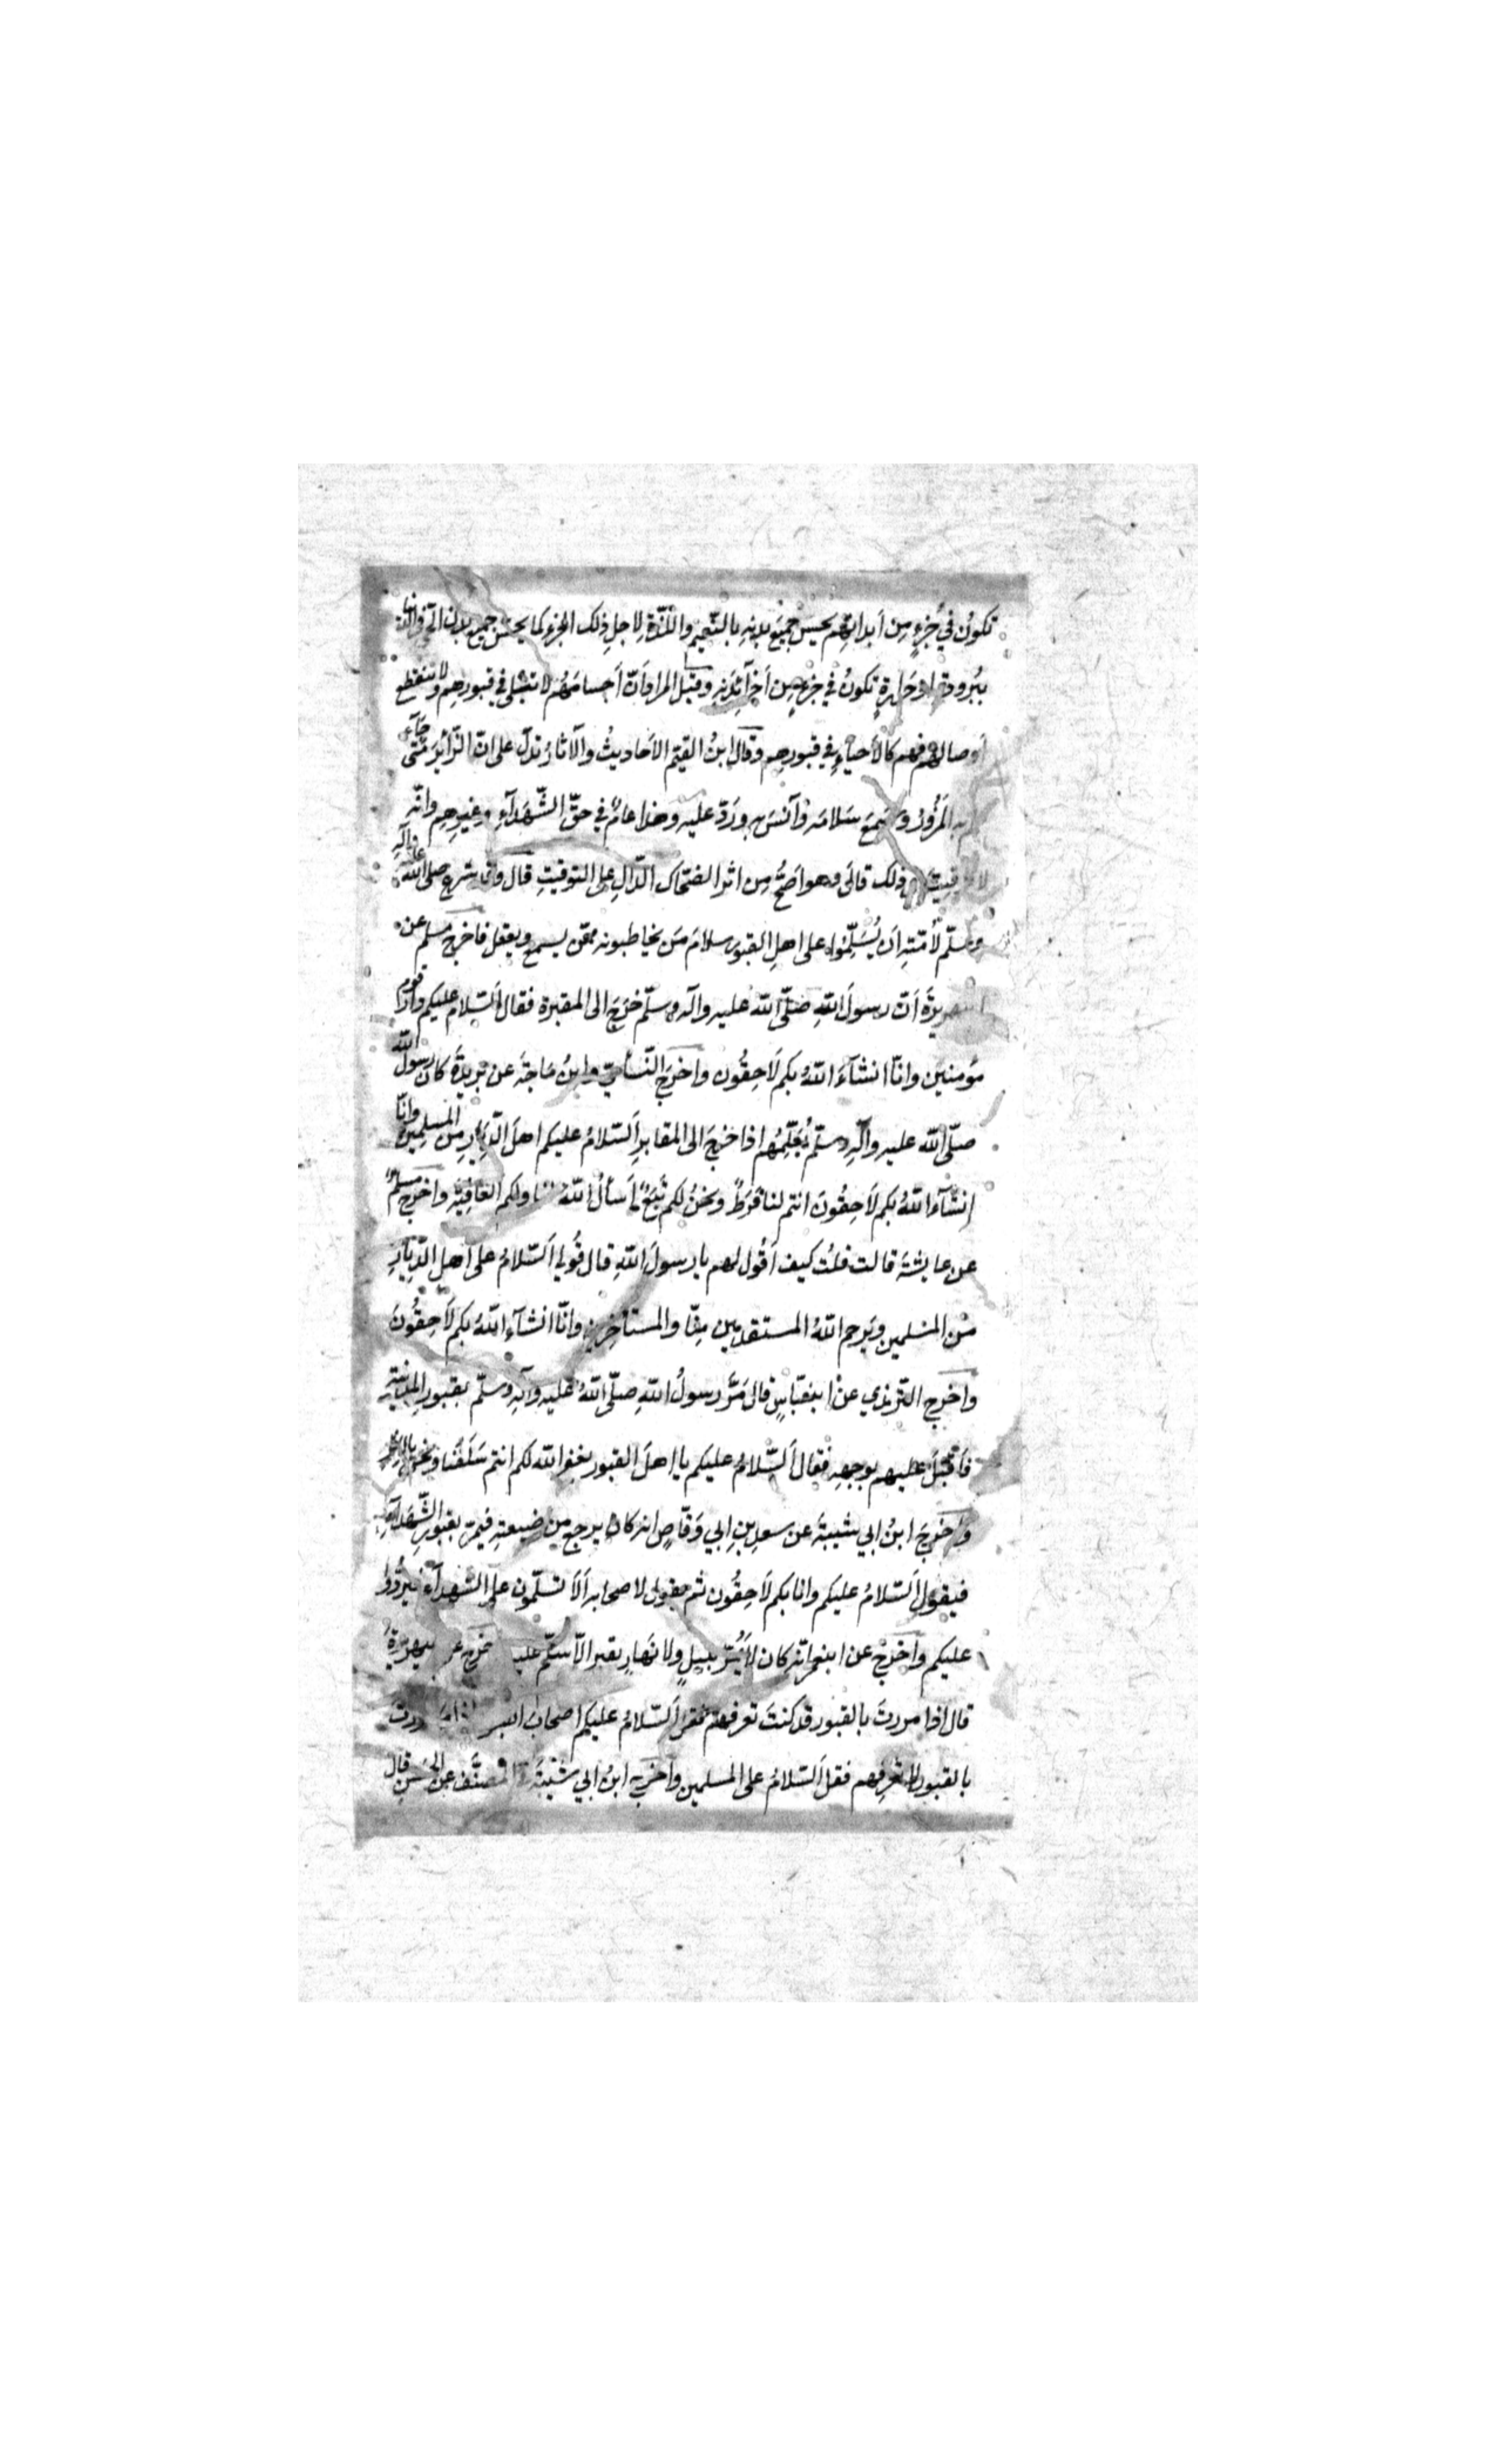 تكونُ في جُزءٍ مِن أبدانِهِم يحسّ جميعَ بدنِهِ بالنّعيمِ واللّذّة لِاجلِ ذلك الجزءِ كما يحسّ جميع بدن الحيّ في الدنيا
ببُرودةٍ اوحَرارةٍ تكونُ في جزءٍ مِن اَجزآءِ بَدَنِهِ وقيل المراد اَنّ اَجسامَهُم لا تبلى في قبورِهِم ولا تنقطع
اَوصالهم فهم كالاَحياءِ في قبورِهِم وقال ابنُ القيّم الاَحاديثُ والآثارُ تدلّ على انّ الزّائِرَ متى جآء
به المَزُورُ وسَمِعَ سَلامَه وآنسَ بهِ ورَدّ عليه وهذا عامٌّ في حقّ الشّهَدآءِ وغيرِهِم وانّه
لا توقيتَ في ذلك قال وهو اصَحُّ مِن اثر الضحّاك الدّالِ على التوقيتِ قال وقد شرع صلى الله عليه وآله
وسلّم لأُمّتِهِ اَن يُسَلِّمُوا على اهلِ القبورِ سلامَ مَن يخاطبونه ممّن يسمع ويعقل فاخرج مسلم عن
ابي هريرةَ اَنّ رسولَ اللّهِ صلّى اللّه عليه وآله وسلّم خرَجَ الى المقبرة فقال اَلسّلام عليكم دار قوم
مؤمنين وانّا انشآءَ اللّهُ بكم لَاحِقُون واخرَج النّسآئيّ وابنُ مَاجَة عن بُريدَةَ كان رسول الله
صلّى اللّه عليه وآلِهِ وسلّم يُعَلِّمُهُم اذا خرجَ الى المقابرِ اَلسّلامُ عليكم اهلَ الدِّيَارِ مِنَ المسلمين وانّا
إنشآءَ اللّهُ بكم لَاحِقُونَ انتم لنا فَرَطٌ ونحنُ لكم تَبَعٌ اَسألُ اللّهَ لنا ولكم العَافِيَة واخرَج مسلمٌ
عن عايشةَ قالت قلتُ كيف اَقُول لهم يا رسولَ اللّهِ قال قُولي اَلسّلامُ على اَهلِ الدِّيَارِ
مِنَ المسلمين ويَرحم اللّهُ المستقدمين مِنّا والمستأخِرين وانّا انشآءَ اللّهُ بكم لَاحِقُونَ
واخرج الترمذي عن ابنعبّاسٍ قال مَرَّ رسولُ اللّهِ صلّى اللّهُ عليه وآلِهِ وسلّم بقبورِ المدينة
فَاَقبَلَ عليهم بوجهِهِ فقال اَلسّلامُ عليكم يا اهلَ القبور يغفر اللّه لكم انتم سَلَفُنا ونحن بالاثر
وَاخرَجَ ابنُ ابي شيبةَ عن سعدِ بنِ ابي وَقّاصٍ انه كان يرجع مِن ضيعتِهِ فيمرّ بقبورِ الشّهَدآءِ
فيقول اَلسّلامُ عليكم وانا بكم لَاحِقُون ثم يقول لاصحابه اَلَا تسلّمون على الشهدآءِ فيَردُّوا
عليكم واَخرَجَ عن ابنعمر انّه كان لَا يمُرّ بليلٍ ولا نهارٍ بقبر الّا سلّم عليه واخرج عن ابيهريرةَ
قال اذا مررتَ بالقبور قد كنتَ تعرفهم فقل اَلسّلامُ عليكم اصحابَ القبور واذا مررت
بالقبور لا تعرفهم فقل اَلسّلامُ على المسلمين واخرَج ابنُ ابي شيبَةَ في المصنّف عن الحَسَنِ قال